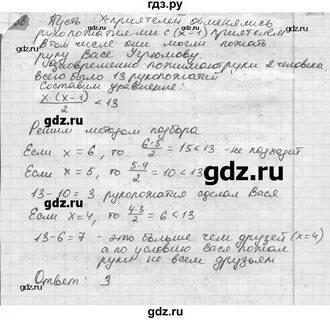 Пусть х-приятелей обменялись
рукопожатия-ми с (х-1) приятелем
В том числе они могли пожать
руку Васе Угрюмову.
одновременно пожимают руки 2 человека
всего было 13 рукопожатий
Составим уравнение:
х·(х-1)/2 < 13
Решим методом подбора
Если х = 6, то 6·5/2 = 15 < 13 - не подходит
Если х = 5, то 5·4/2 = 10 < 13
13-10 = 3 рукопожатия сделал Вася
Если х = 4, то 4·3/2 = 6 < 13
13-6 = 7 - это больше чем друзей (х=4)
а по условию Вася пожал
руки не всем друзьям
Ответ: 3
gdz.ru
gdz.ru
gdz.ru
gdz.ru
gdz.ru
gdz.ru
gdz.ru